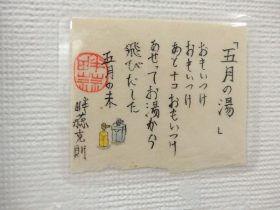 「五月の湯」
おもいつけ
おもいつけ
あと十コおもいつけ
あせってお湯から
飛びだした
五月の末